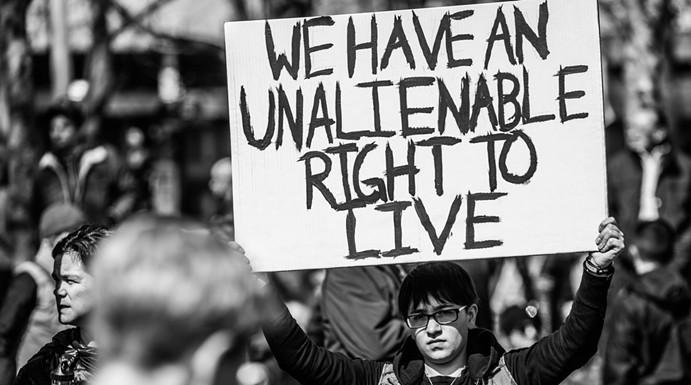 WE HAVE AN
UNALIENABLE
RIGHT TO
LIVE